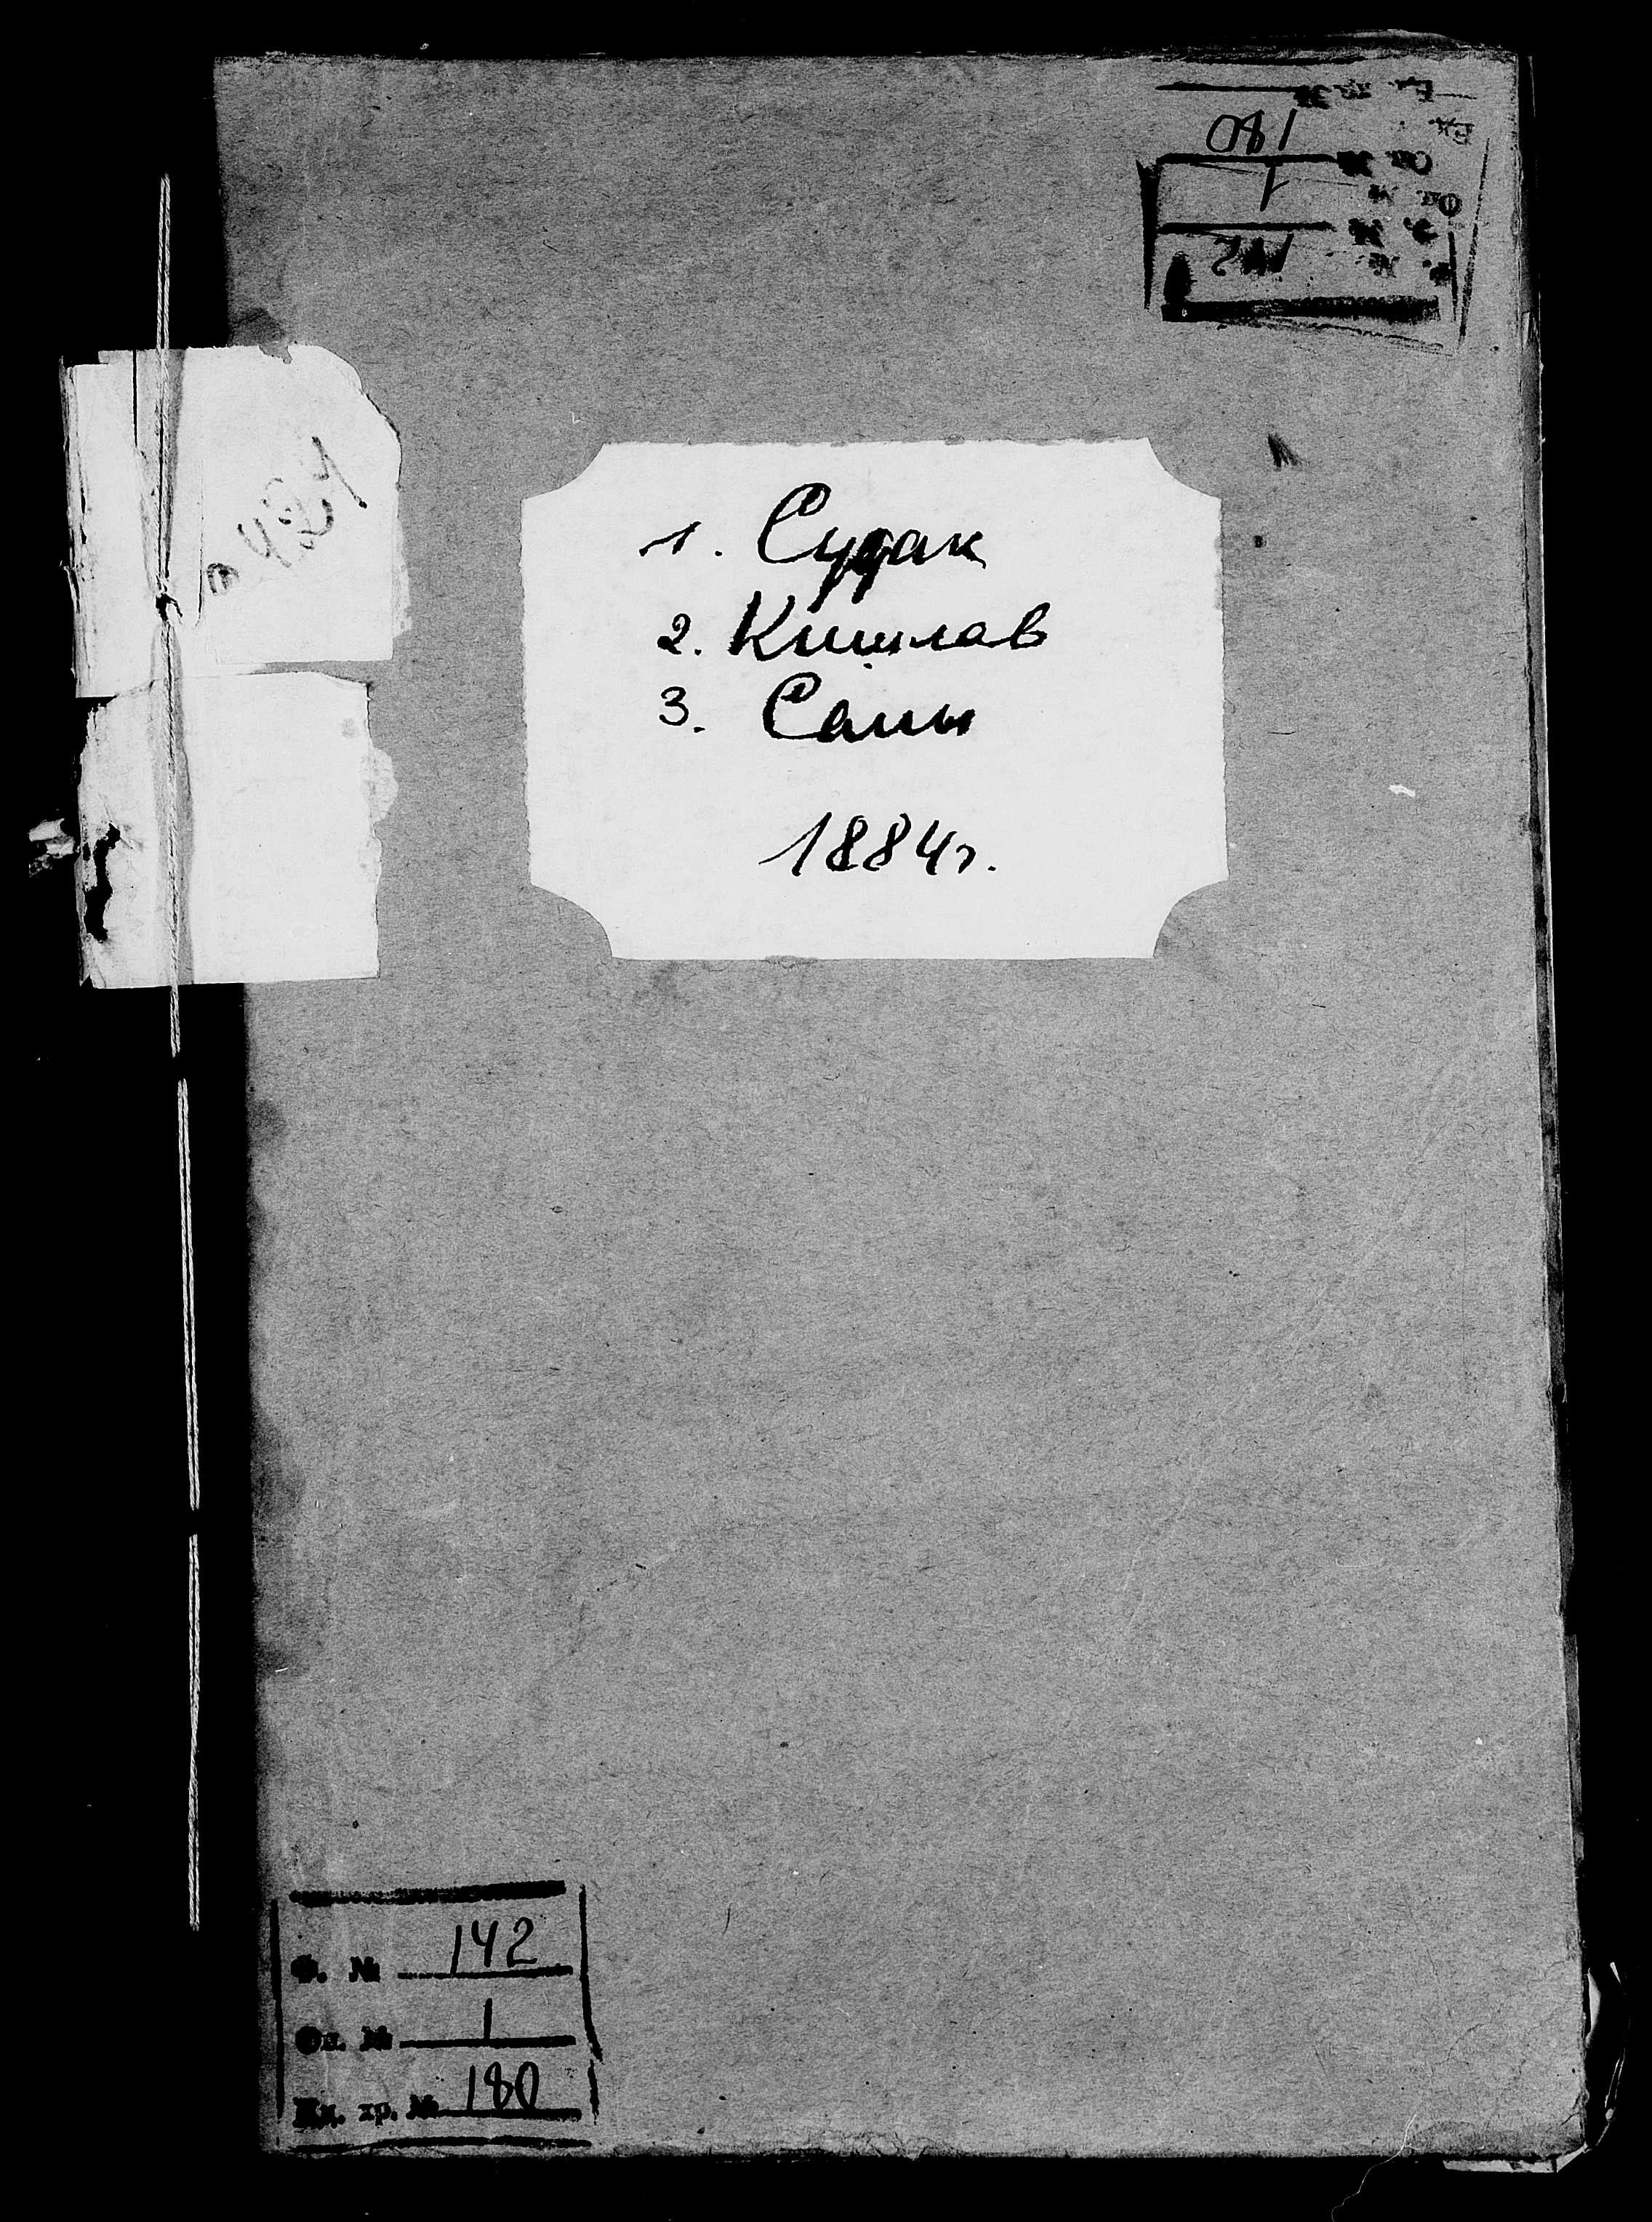 1. Судак
2. Кишлав
3. Салы
1884 г.
Ф. № 142
Оп. № 1
Ед. хр. № 180